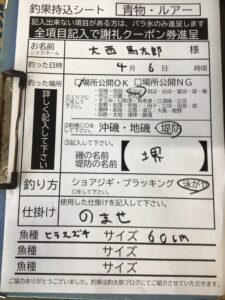 釣果持込シート 青物・ルアー
記入出来ない項目がある方は、バラ氷のみ進呈します
全項目記入で謝礼クーポン券進呈
お名前 ニックネーム 大西 馬太郎 様
釣った日時 4月6日 時頃
釣った場所 □場所公開OK □場所公開NG
詳しく記入して下さい
①エリアに○をして下さい
②○をして下さい 沖磯・地磯・堤防
③記入して下さい
磯の名前
堤防の名前 ( 堺 )
釣り方 ショアジギ・プラッキング 泳がせ
○をして下さい
仕掛け 使用した仕掛を記入して下さい
のませ
魚種 ヒラスズキ サイズ 60cm
魚種 サイズ
魚種 サイズ
ご協力ありがとうございました。釣果は釣太郎ブログにてご紹介させていただきます。